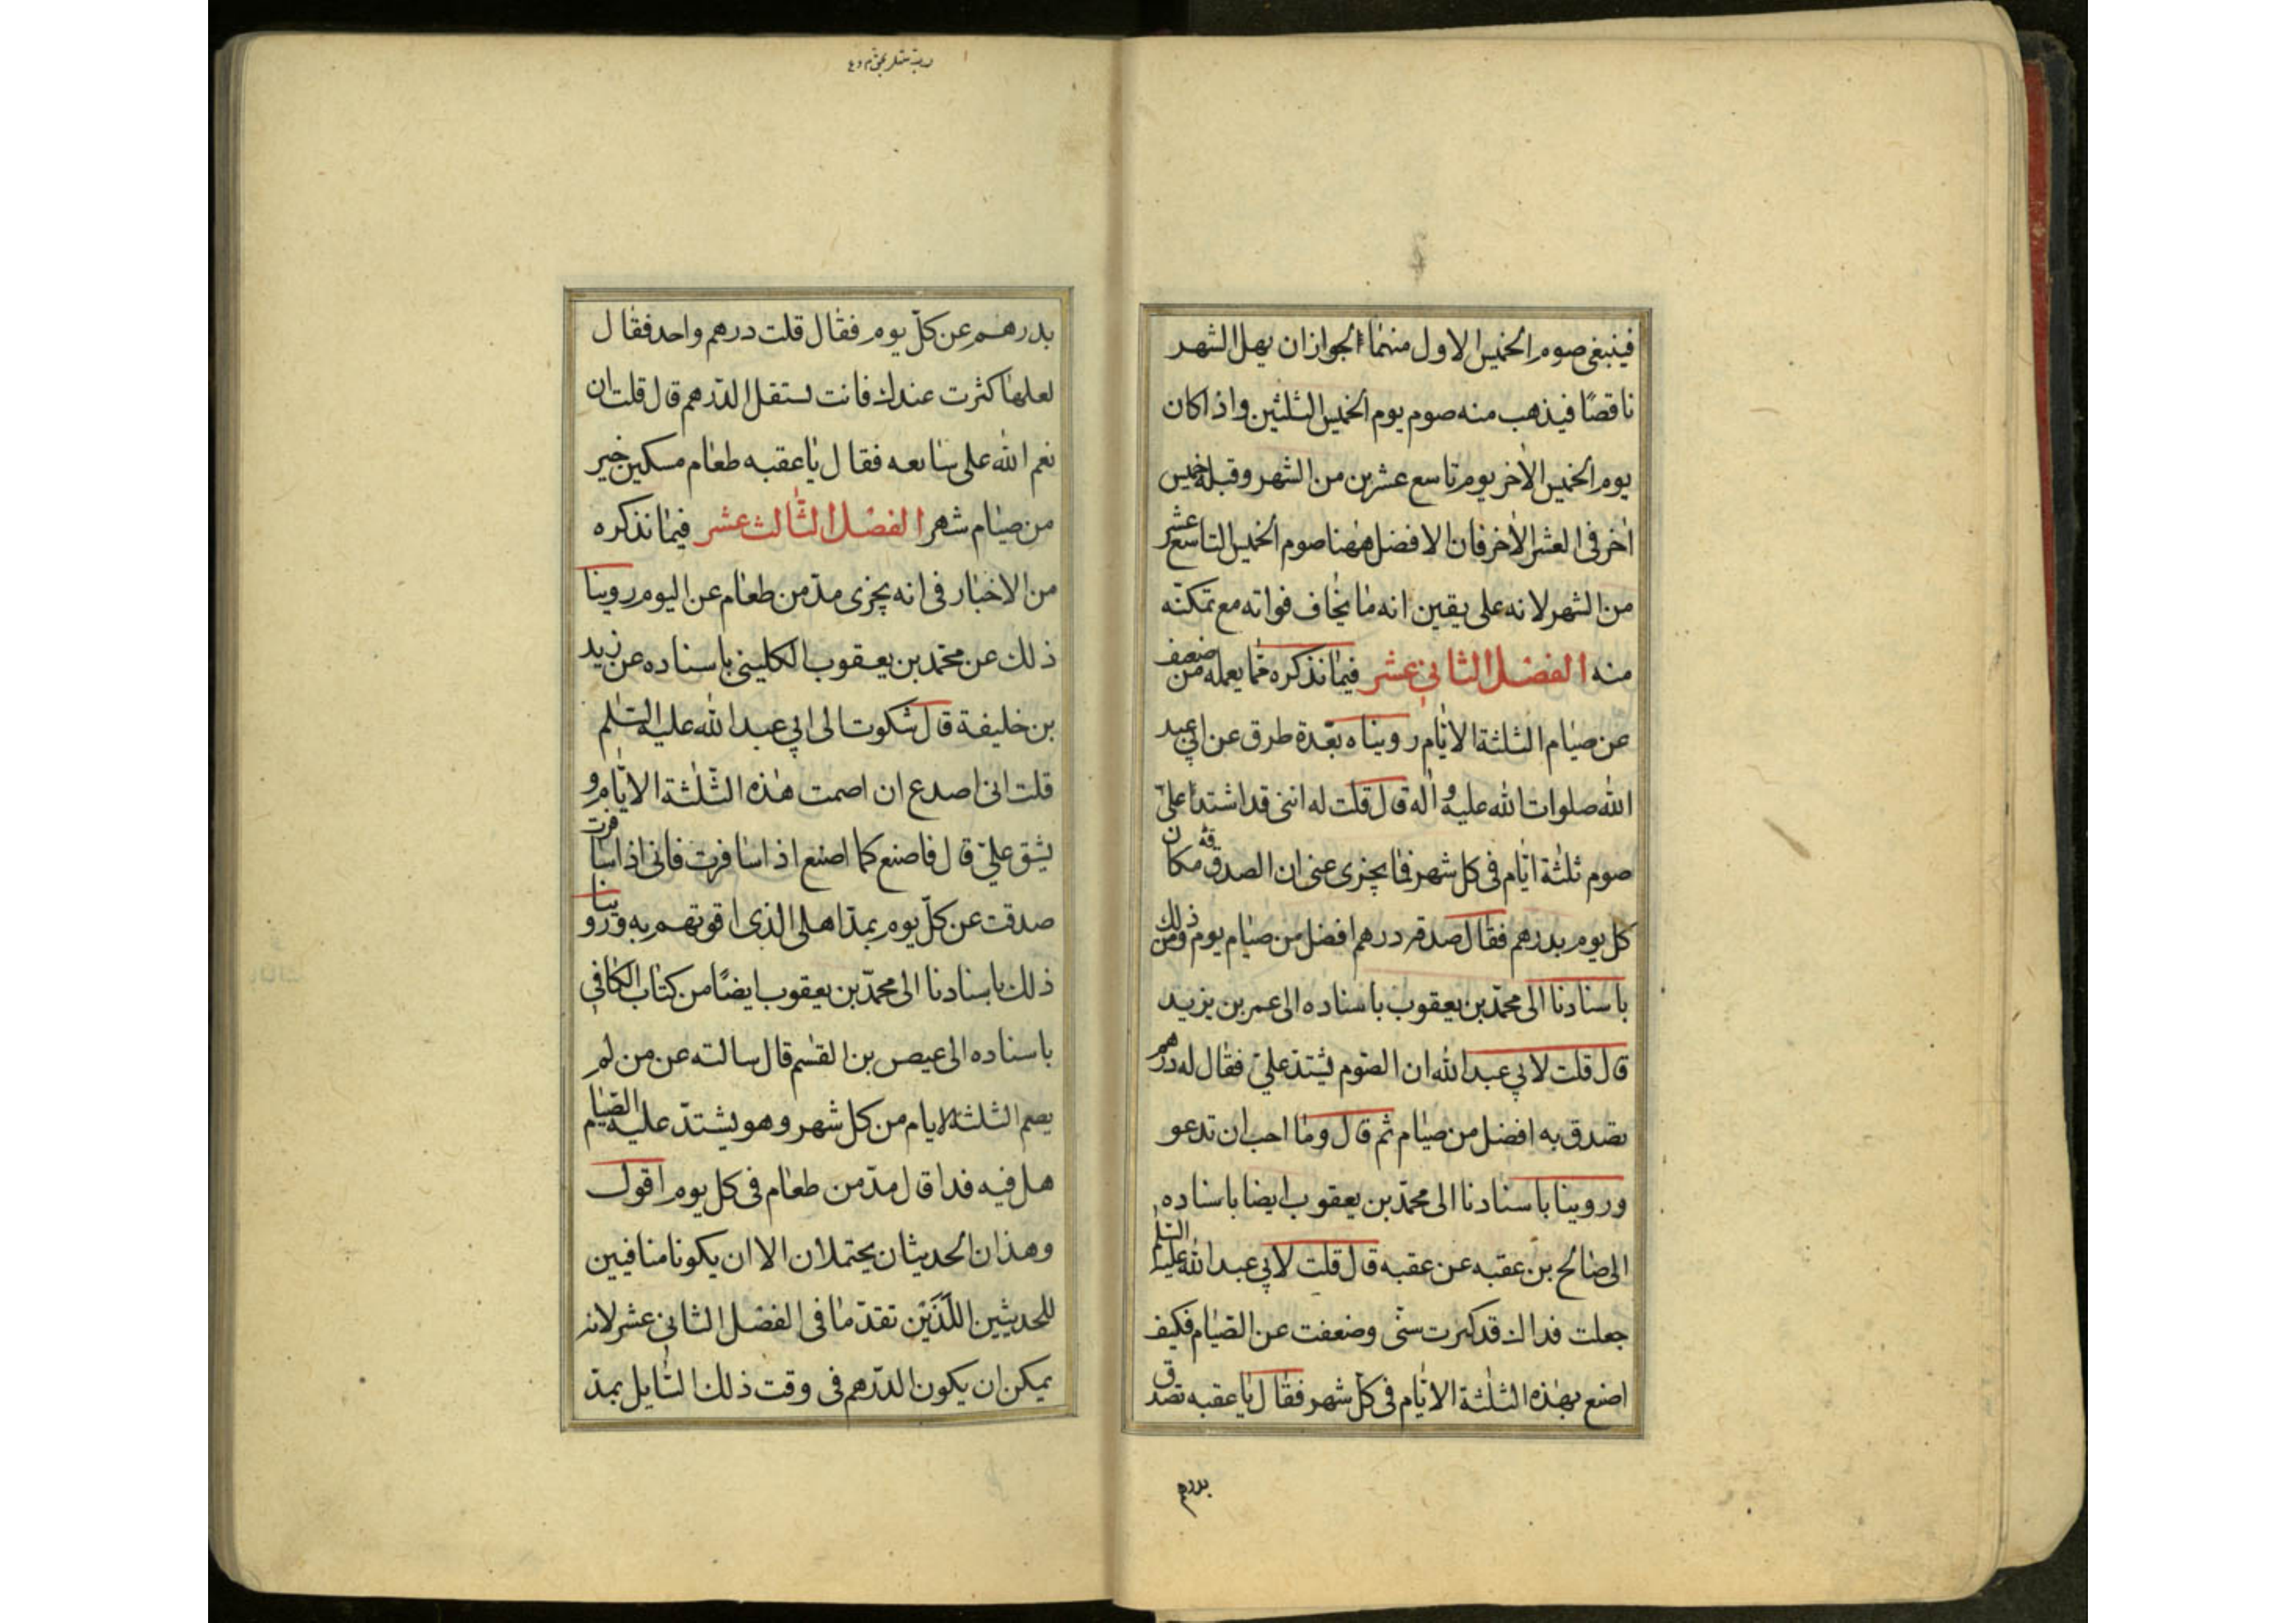 فينبغى صوم الخميس الاول منهما لجواز ان يهل الشهر
ناقصًا فيذهب منه صوم يوم الخميس الثلثين واذا كان
يوم الخميس الاخر يوم تاسع عشرين من الشهر وقبله خميس
اخر فى العشر الاخر فان الافضل ههنا صوم الخميس التاسع عشر
من الشهر لانه على يقين انه ما يخاف فواته مع تمكنه
منه الفصل الثانى عشر فيما نذكره مما يعمله من ضعف
عن صيام الثلثة الايام رويناه بعّدة طرق عن ابي عبد
الله صلوات الله عليه واله قال قلت له اننى قد اشتدّ علىّ
صوم ثلثة ايّام فى كل شهر فما يجزى عنى ان اتصدق مكان
كل يوم بدرهم فقال صدقه درهم افضل من صيام يوم ومن ذلك
باسنادنا الى محمّد بن يعقوب باسناده الى عمر بن يزيد
قال قلت لابي عبد الله ان الصّوم يشتدّ علىّ فقال له درهم
تصدق به افضل من صيام ثم قال وما احب ان تدعو
وروينا باسنادنا الى محمّد بن يعقوب ايضا باسناده
الى صالح بن عقبه عن عقبه قال قلت لابي عبد الله عليه السلم
جعلت فداك قد كبرت سنّى وضعفت عن الصّيام فكيف
اصنع بهذه الثلثة الايّام فى كلّ شهر فقال يا عقبه تصدق
بدرهم
بدرهم عن كلّ يوم فقال قلت درهم واحد فقال
لعلها كثرت عندك فانت تستقل الدّرهم قال قلت ان
نعم الله على سابعه فقال يا عقبه طعام مسكين خير
من صيام شهر الفصل الثّالث عشر فيما نذكره
من الاخبار فى انه يجزى مدّ من طعام عن اليوم روينا
ذلك عن محمّد بن يعقوب الكلينى باسناده عن زيد
بن خليفة قال شكوت الى ابي عبد الله عليه السّلم
قلت انى اصدع ان اصمت هذه الثّلثة الايّام و
يشق علىّ قال فاصنع كما اصنع اذا سافرت فانى اذا سافرت
صدقت عن كلّ يوم بمدّ اهلى الذى اقوتهم به وروينا
ذلك باسنادنا الى محمّد بن يعقوب ايضًا من كتاب الكافي
باسناده الى عيص بن القسم قال سالته عن من لم
يصم الثلثة الايام من كل شهر وهو يشتدّ عليه الصّيام
هل فيه فدا قال مدّ من طعام فى كل يوم اقول
وهذان الحديثان يحتملان الا ان يكونا منافيين
للحديثين اللّذَيْن تقدّما فى الفصل الثانى عشر لانه
يمكن ان يكون الدّرهم فى وقت ذلك السّايل بمدّ